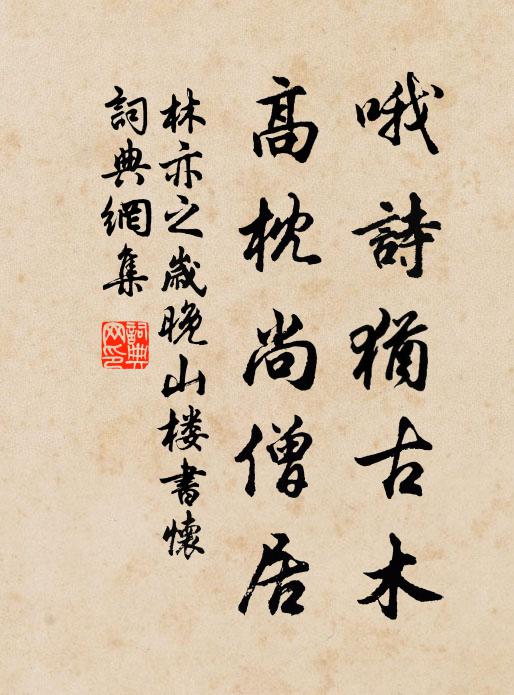 哦詩猶古木
高枕尚僧居
林亦之歲晚山楼書懷
詞典網集
詞典網印